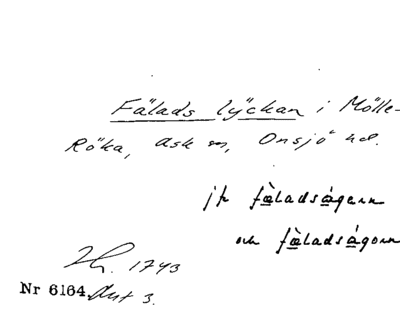 Fälads lÿckan i Mölle-
Röka, Ask sn, Onsjö hd.
jfr fàladságern
och fàladságorn
Lh. 1743
Nr 6164. Avt 3.